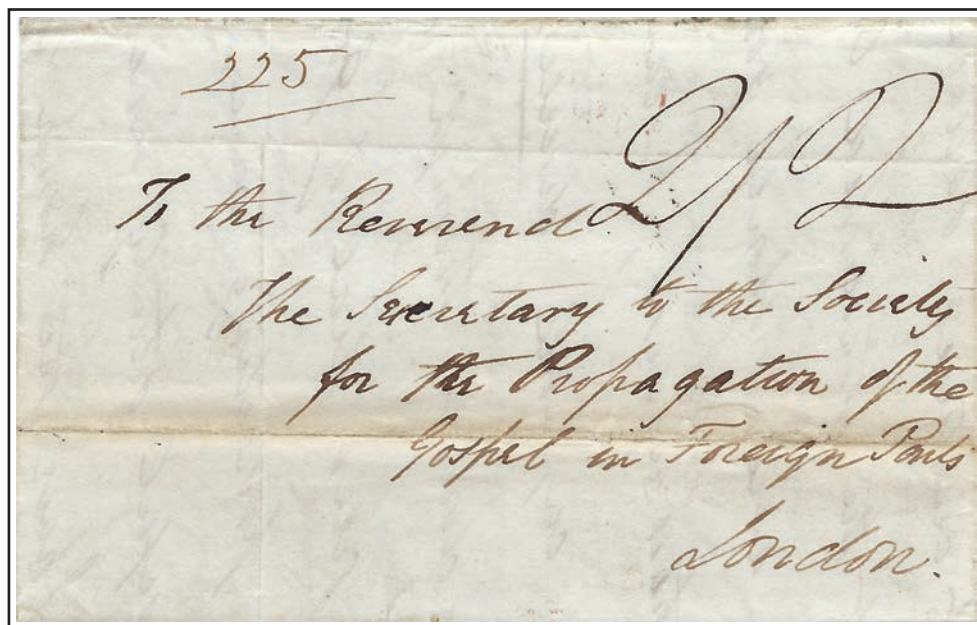 225
2/2
To the Reverend
The Secretary to the Society
for the Propagation of the
Gospel in Foreign Parts
London.